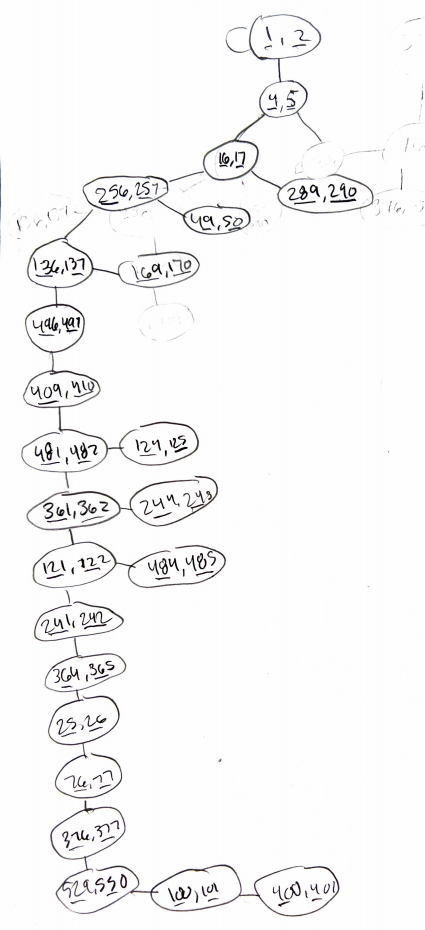 1, 2
4, 5
16, 17
256, 257
289, 290
49, 50
136, 137
169, 170
496, 497
409, 410
481, 482
124, 125
361, 362
244, 245
121, 122
484, 485
241, 242
364, 365
25, 26
76, 77
376, 377
529, 530
100, 101
400, 401